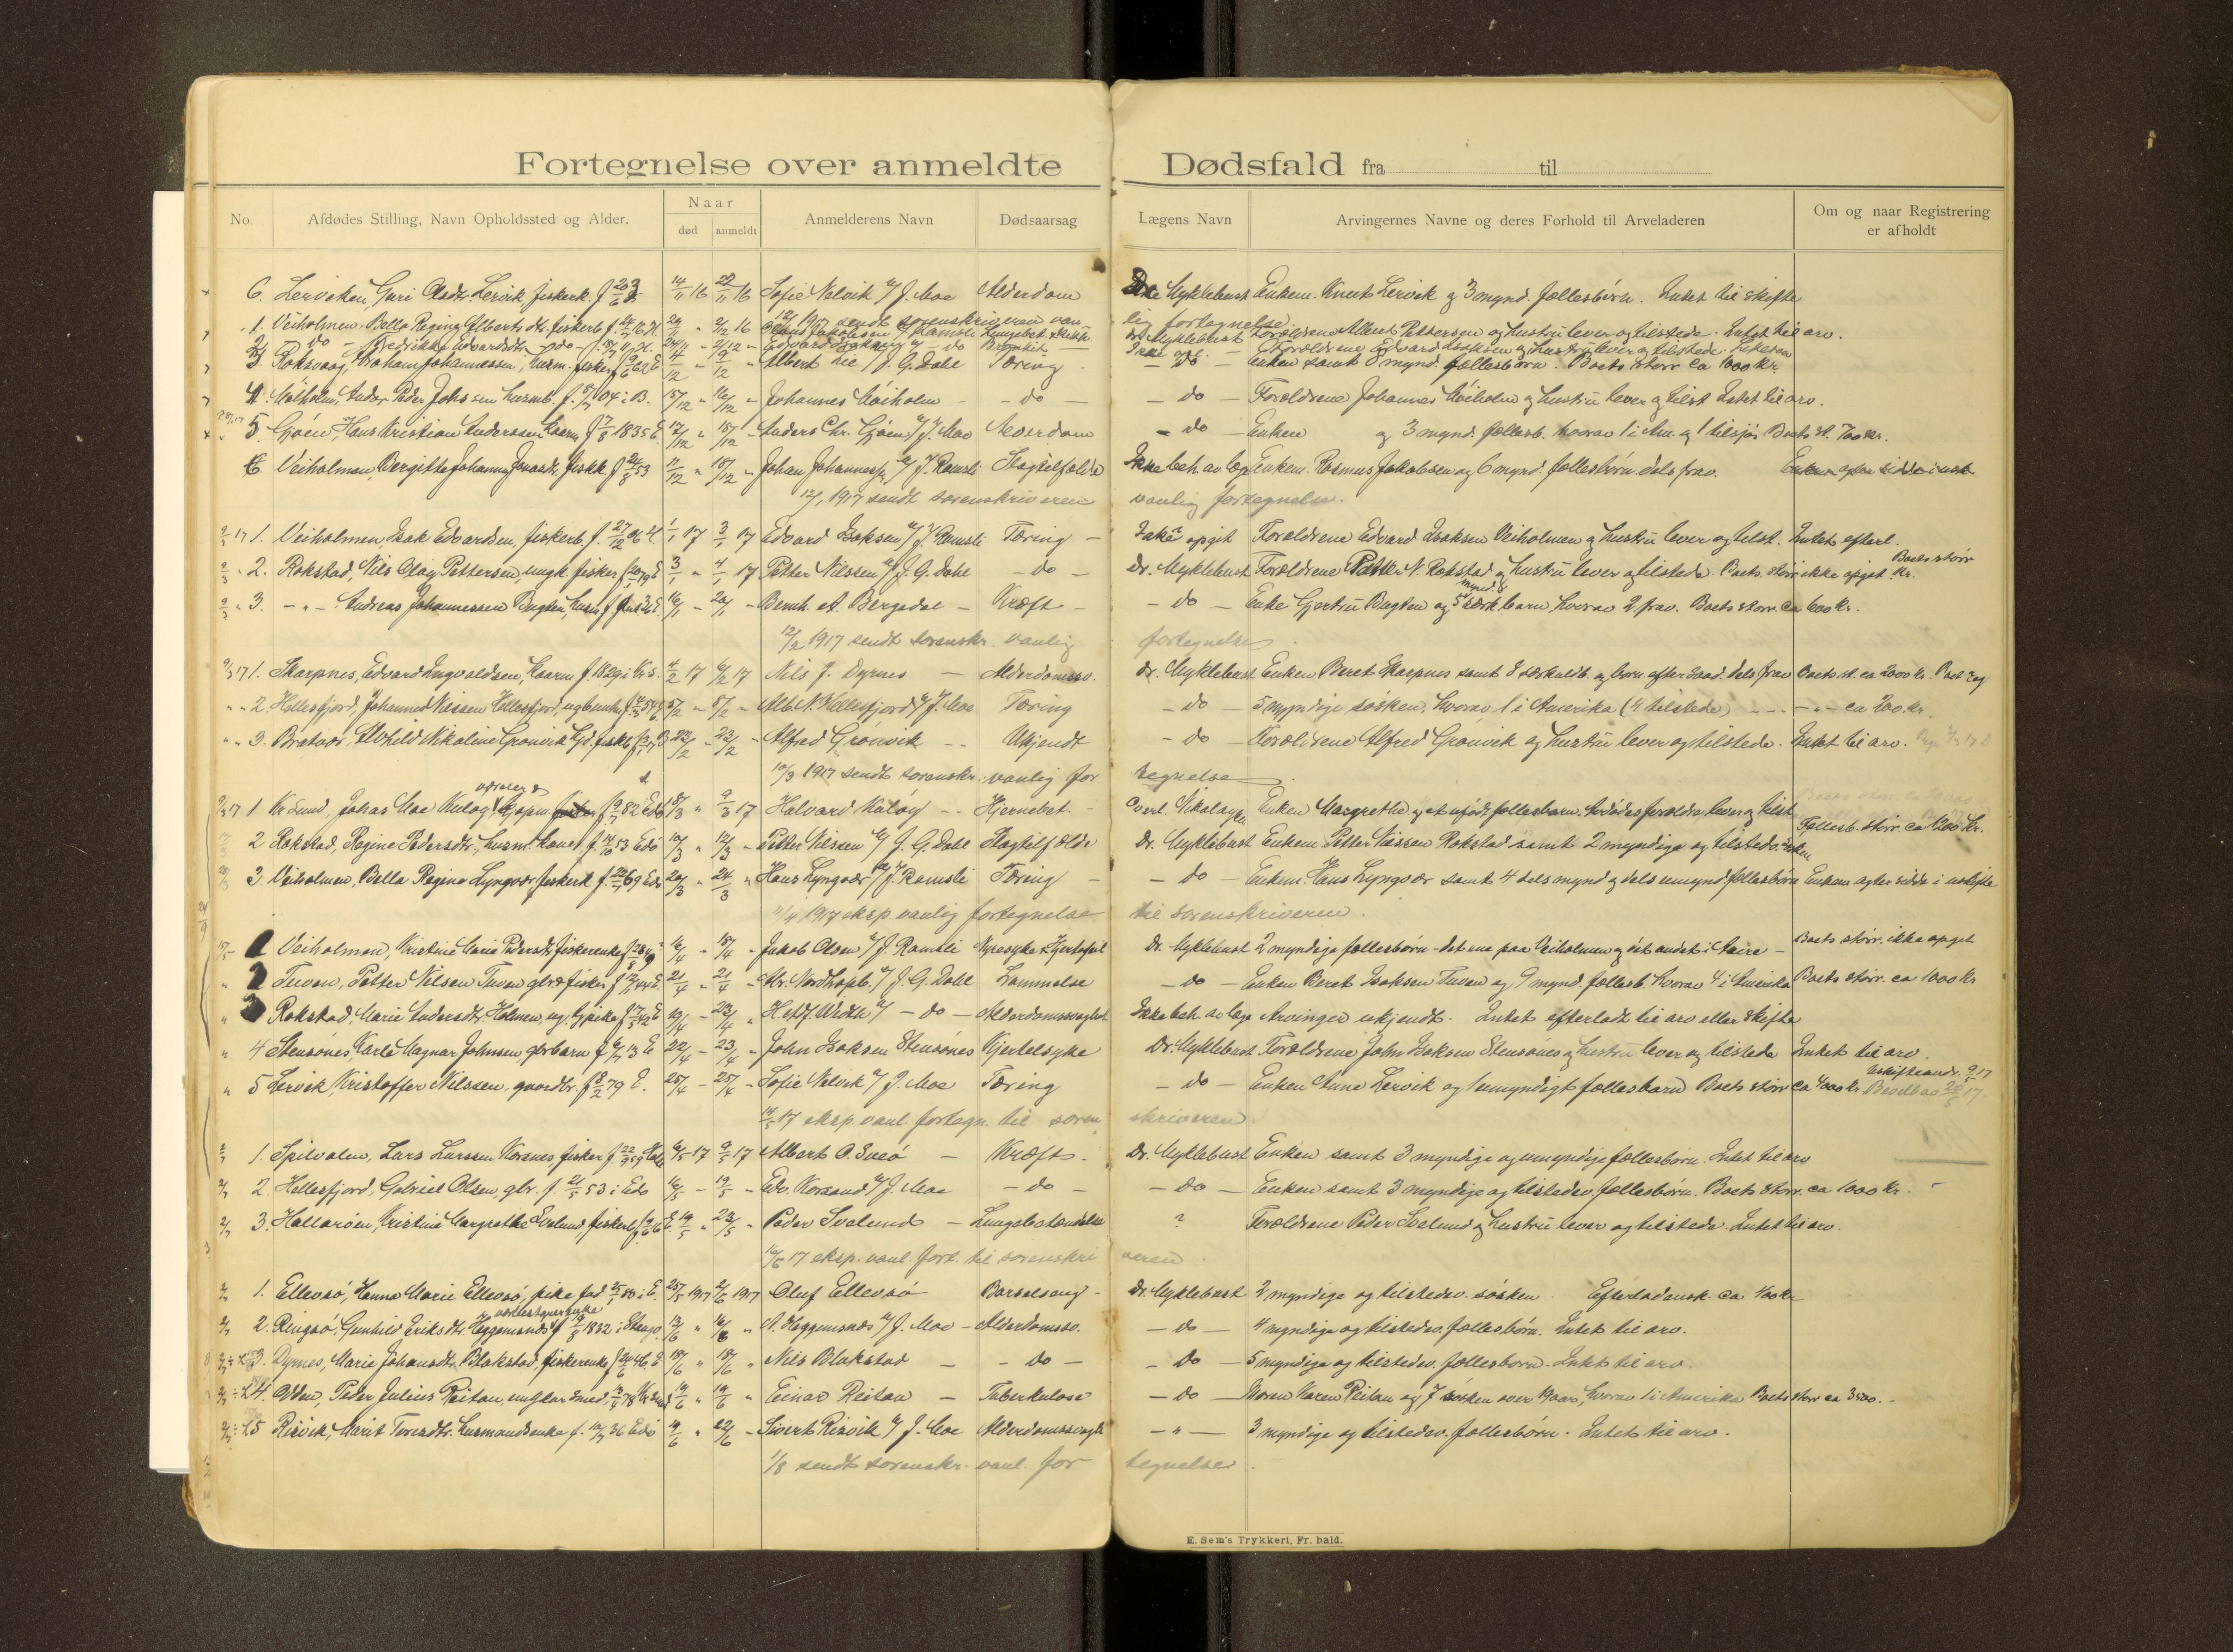 Fortegnelse over anmeldte Dødsfald fra til
No. Afdødes Stilling, Navn Opholdssted og Alder. Naar død anmeldt Anmelderens Navn Dødsaarsag Lægens Navn Arvingernes Navne og deres Forhold til Arveladeren Om og naar Registrering er afholdt
6. Lerviken, Guri Olsdtr. Lervik fiskerk. f. 14/11 16 22/11 16 Sofie Nelvik v/ J. Moe Alderdom Dr. Myklebust Enkem. Knut Lervik og 3 mynd. fællesbørn. Intet til skifte
12/1 1917 sendt sorenskriveren vanlig fortegnelse
1. Veiholmen, Bella Regina Alberts dtr. fiskerb. 2/12 16 Dr. Myklebust Forældrene Albert Pettersen og hustru lever og tilstede. Intet til arv.
2. do - Fredrikke Edvardsdtr. - do - Forældrene Edvard Isaksen og hustru lever og tilstede.
3. Roksvaag, Abraham Johannessen, husm. fisker 14/12 " 19/12 " Albert Lie v/ J. G. Dahl Tæring - do - Enken samt 8 mynd. fællesbørn. Boets størr. ca 1000 kr.
4. Møiholm, Anders Peder Johs sen husmb. f. 8/7 04 i B. 15/12 " 16/12 " Johannes Møiholm - do - - do - Forældrene Johannes Møiholm og hustru lever og tilst. Intet til arv.
5. Gjøen, Hans Kristian Anderssen kaarm. f. 17/8 1835 E. 12/12 " 18/12 " Anders Chr. Gjøen v/ J. Moe Alderdom - do - Enken og 3 mynd. fællesb. hvorav 1 i Am. og 1 tilsjøs Boets st. 700 kr.
6. Veiholmen, Bergitte Johanna Jonasdt. fiskk. f. 24/8 53 11/12 " 18/12 " Johan Johannesen v/ J. Ramsli Slagtilfælde Ikke beh. av læge Enkem. Rasmus Jakobsen og 6 mynd. fællesbørn dels frav. Enkem. agter sidde i usk.
12/1 1917 sendt sorenskriveren vanlig fortegnelse.
1. Veiholmen, Isak Edvardsen, fiskerb. f. 27/12 06 H. 1/1 17 3/1 17 Edvard Isaksen v/ J. Ramsli Tæring - Ikke opgit Forældrene Edvard Isaksen Veiholmen og hustru lever og tilst. Intet efterl.
2. Rokstad, Nils Olaf Pettersen ungk. fisker 3/1 " 4/1 17 Petter Nilssen v/ J. G. Dahl - do - Dr. Myklebust Forældrene Petter N. Rokstad og hustru lever og tilstede. Boets størr ikke opgit.
3. - " - Andreas Johannessen Bugten, husm. 16/1 - 20/1 - Bernh. A. Bergedal - Kræft - - do - Enke Gjertru Bugten og 5 mynd. særk. barn hvorav 2 frav. Boets størr. ca 600 kr.
12/2 1917 sendt sorenskr. vanlig fortegnelse
1. Skarpnes, Edvard Ingvaldsen, kaarm f. 1829 i Kr.s. 4/2 17 6/2 17 Nils J. Dyrnes - Alderdomssv. Dr. Myklebust Enken Beret Skarpnes samt 8 særkuldb. og børn efter saad. dels frav Boets st. ca 2000 kr.
2. Hellesfjord, Johannes Nilssen Hellesfjord, 5/2 - 8/2 - Alb. N. Hellesfjord v/ J. Moe Tæring - do - 5 myndige søsken, hvorav 1 i Amerika (4 tilstede) - - - " - ca 200 kr.
3. Brataas, Alvhild Nikoline Grønvik 22/2 - 23/2 - Alfred Grønvik - Ukjendt - do - Forældrene Alfred Grønvik og hustru lever og tilstede. Intet til arv.
10/3 1917 sendt sorenskr. vanlig fortegnelse
1 Kr. Sund, Johas Moe Kuløy 8/3 " 9/3 17 Halvard Kuløy - Hjernebet. - Enken Margrethe og et ufødt fællesbarn. Avdødes forældre lever og tilst.
2 Rokstad, Regine Pedersdtr, husm. kone f. 14/10 53 Edø 10/3 " 12/3 " Petter Nilssen v/ J. G. Dahl Slagtilfælde Dr. Myklebust Enkem Petter Nilssen Rokstad samt 2 myndige og tilstedv. søsken Fællesb. størr. ca 1200 kr.
3 Veiholmen, Bella Regina Lyngvær fiskerk f. 22/7 69 Edø 20/3 " 24/3 " Hans Lyngvær v/ J. Ramsli Tæring - - do - Enkem. Hans Lyngvær samt 4 dels mynd og dels umynd. fællesbørn Enkem agter sidde i uskifte
11/4 1917 eksp vanlig fortegnelse til sorenskriveren.
1 Veiholmen, Kristine Marie Pedersdt. fiskerenke 16/4 - 18/4 - Jakob Olsen v/ J. Ramsli Nyresyke & Hjertefeil Dr. Myklebust 2 myndige fællesbørn - det ene paa Veiholmen og det andet i Aure - Boets størr. ikke opgit
2 Tuven, Petter Nilsen Tuven gbr. & fisker 21/4 - 21/4 - Kr. Nordhopb. v/ J. G. Dahl Lammelse - do - Enken Beret Isaksen Tuven og 9 mynd. fællesb. hvorav 4 i Amerika Boets størr. ca 1000 kr
3 Rokstad, Marie Andersdt. Holmen, ug. pike 19/4 - 23/4 " v/ - do - Alderdomssvaghet Ikke beh. av læge Arvinger ukjendt. Intet efterladt til arv eller skifte
4 Stensønes, Karle Magnar Johnsen gbrbarn f. 6/7 13 E. 22/4 - 23/4 - John Isaksen Stensønes Kjertelsyke Dr. Myklebust Forældrene John Isaksen Stensønes og hustru lever og tilstede Intet til arv.
5 Lervik, Kristoffer Nilssen, gaardbr. f. 8/2 79 E. 25/4 - 25/4 - Sofie Nelvik v/ J. Moe Tæring - do - Enken Anne Lervik og 1 umyndigt fællesbarn Boets størr ca 4000 kr.
14/5 17 eksp. vanl. fortegn. til sorenskriveren.
1. Spilvalen, Lars Larssen Korsnes, fisker 4/5 17 9/5 17 Albert O. Sveø - Kræft. Dr. Myklebust Enken samt 3 myndige og umyndige fællesbørn. Intet til arv
2. Hellesfjord, Gabriel Olsen, gbr. f. 21/5 53 i Edø 16/5 - 19/5 - Edv. Korsand v/ J. Moe - do - - do - Enken samt 3 myndige og tilstedev. fællesbørn. Boets størr. ca 1000 kr.
3. Hallarøen, Kristine Margrethe Svelund, 19/5 " 23/5 " Peder Svelund - Lungebetændelse ? Forældrene Peder Svelund og hustru lever og tilstede. Intet til arv.
16/6 17 eksp. vanl. fort. til sorenskriveren.
1. Ellevsø, Hanna Marie Ellevsø, pike fød 25/1 80 i E. 25/5 1917 2/6 1917 Oluf Ellevsø Barselseng - Dr. Myklebust 2 myndige og tilstedev. søsken. Efterladensk. ca 400 kr
2. Ringsø, Gunhild Eriksdt. Heggemsnes 13/6 " 16/6 " A. Heggemsnes v/ J. Moe - Alderdomssv. - do - 4 myndige og tilstedev. fællesbørn. Intet til arv.
3. Dyrnes, Marie Johansdt. Blakstad, fiskerenke 18/6 " 18/6 " Nils Blakstad - - do - - do - 5 myndige og tilstedev. fællesbørn. Intet til arv.
4. Odden, Peder Julius Reitan, ungkar smed, 14/6 " 19/6 " Einar Reitan - Tuberkulose - do - Moren Karen Reitan og 7 søsken over 19 aar, hvorav 1 i Amerika Boets størr ca 3500. -
5 Risvik, Marit Toresdtr. husmandsenke f. 10/7 36 Edø 19/6 " 22/6 - Sivert Risvik v/ J. Moe Alderdomssvagh - " - 3 myndige og tilstedev. fællesbørn. Intet til arv.
1/8 sendt sorenskr. vanl. fortegnelse.
E. Sem's Trykkeri, Fr. hald.